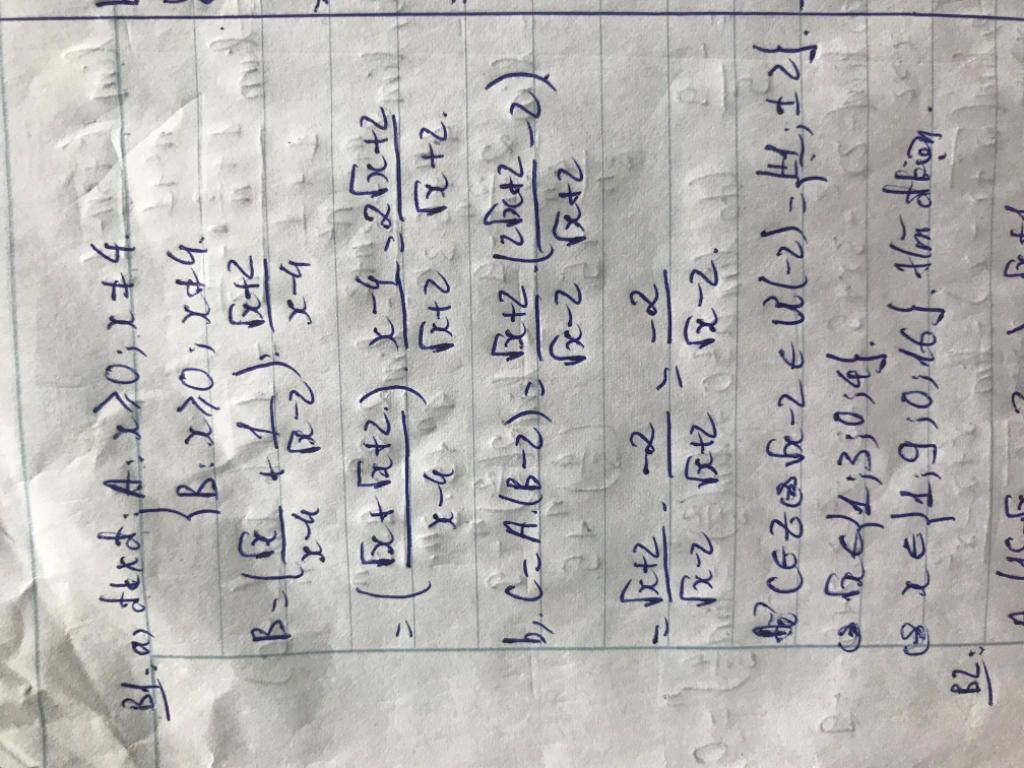 B1. a) đkxđ: A: x ≥ 0; x ≠ 4.
B: x ≥ 0; x ≠ 4.
B = (√x/(x-4) + 1/(√x-2)) : (√x+2)/(x-4)
= ((√x + √x+2)/(x-4)) . (x-4)/(√x+2) = (2√x+2)/(√x+2).
b, C = A.(B-2) = (√x+2)/(√x-2) . ((2√x+2)/(√x+2) - 2)
= (√x+2)/(√x-2) . -2/(√x+2) = -2/(√x-2).
C∈Z ⇔ √x-2 ∈ Ư(-2) = {±1; ±2}.
⇔ √x ∈ {1; 3; 0; 4}.
⇔ x ∈ {1; 9; 0; 16}. t/m đkiện.
B2: